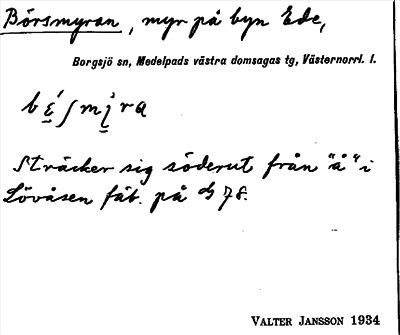 Börsmyran, myr på byn Ede,
Borgsjö sn, Medelpads västra domsagas tg, Västernorrl. l.
Sträcker sig söderut från "å" i
Lövåsen fäb. på 78.
VALTER JANSSON 1934